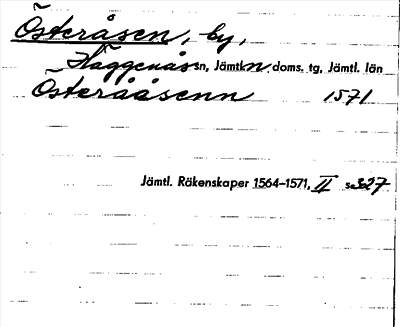 Österåsen, by,
Häggenås sn, Jämtl.n. doms. tg, Jämtl. län
Österååsenn 1571
Jämtl. Räkenskaper 1564–1571, II s. 327